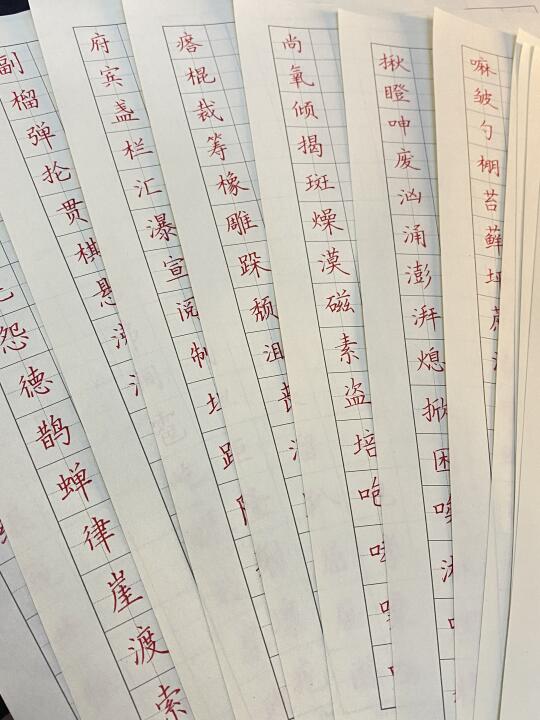 副榴弹抡贯棋悬
怨德鹊蝉律崖渡索
府宾盏栏汇瀑宣阅制
瘩棍裁筹橡雕跺颓沮
尚氧倾揭斑燥漠磁素盗培咆
揪瞪呻废汹涌澎湃熄掀困唤
嘛皱勺棚苔藓坯蔗